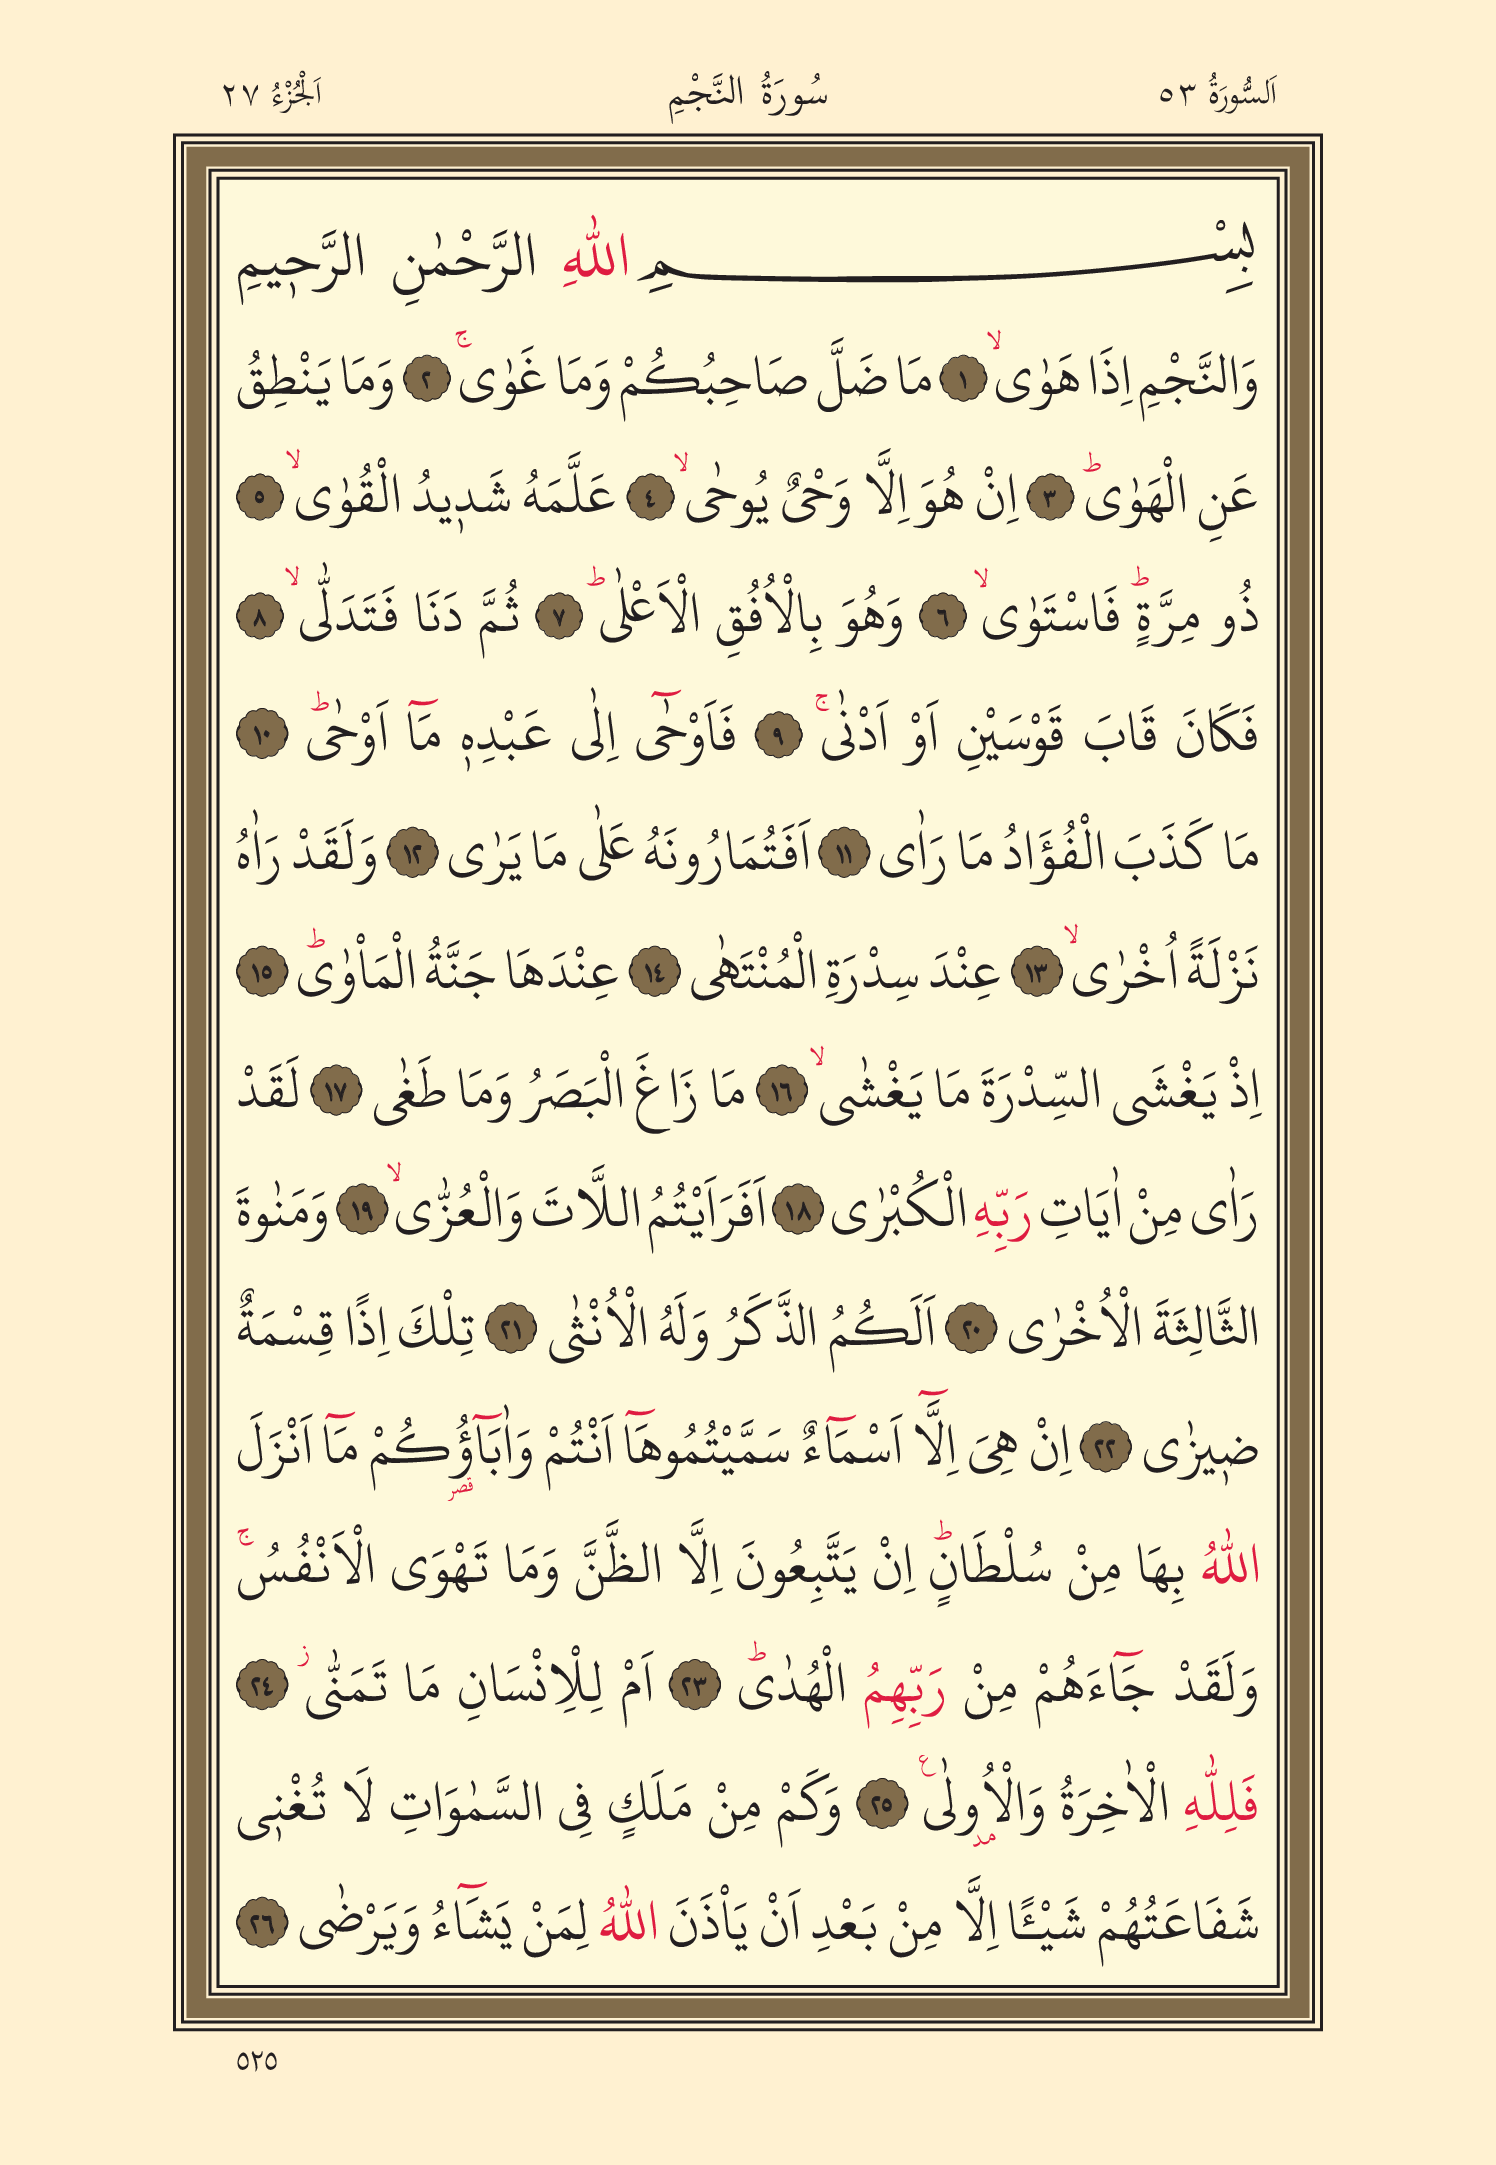 اَلسُّورَةُ ٥٣ سُورَةُ النَّجْمِ اَلْجُزْءُ ٢٧
بِسْمِ اللّٰهِ الرَّحْمٰنِ الرَّح۪يمِ
وَالنَّجْمِ اِذَا هَوٰىۙ ﴿١﴾ مَا ضَلَّ صَاحِبُكُمْ وَمَا غَوٰىۚ ﴿٢﴾ وَمَا يَنْطِقُ
عَنِ الْهَوٰىۜ ﴿٣﴾ اِنْ هُوَ اِلَّا وَحْيٌ يُوحٰىۙ ﴿٤﴾ عَلَّمَهُ شَد۪يدُ الْقُوٰىۙ ﴿٥﴾
ذُو مِرَّةٍۜ فَاسْتَوٰىۙ ﴿٦﴾ وَهُوَ بِالْاُفُقِ الْاَعْلٰىۜ ﴿٧﴾ ثُمَّ دَنَا فَتَدَلّٰىۙ ﴿٨﴾
فَكَانَ قَابَ قَوْسَيْنِ اَوْ اَدْنٰىۚ ﴿٩﴾ فَاَوْحٰٓى اِلٰى عَبْدِه۪ مَٓا اَوْحٰىۜ ﴿١٠﴾
مَا كَذَبَ الْفُؤَادُ مَا رَاٰى ﴿١١﴾ اَفَتُمَارُونَهُ عَلٰى مَا يَرٰى ﴿١٢﴾ وَلَقَدْ رَاٰهُ
نَزْلَةً اُخْرٰىۙ ﴿١٣﴾ عِنْدَ سِدْرَةِ الْمُنْتَهٰى ﴿١٤﴾ عِنْدَهَا جَنَّةُ الْمَاْوٰىۜ ﴿١٥﴾
اِذْ يَغْشَى السِّدْرَةَ مَا يَغْشٰىۙ ﴿١٦﴾ مَا زَاغَ الْبَصَرُ وَمَا طَغٰى ﴿١٧﴾ لَقَدْ
رَاٰى مِنْ اٰيَاتِ رَبِّهِ الْكُبْرٰى ﴿١٨﴾ اَفَرَاَيْتُمُ اللَّاتَ وَالْعُزّٰىۙ ﴿١٩﴾ وَمَنٰوةَ
الثَّالِثَةَ الْاُخْرٰى ﴿٢٠﴾ اَلَكُمُ الذَّكَرُ وَلَهُ الْاُنْثٰى ﴿٢١﴾ تِلْكَ اِذًا قِسْمَةٌ
ض۪يزٰى ﴿٢٢﴾ اِنْ هِيَ اِلَّٓا اَسْمَٓاءٌ سَمَّيْتُمُوهَٓا اَنْتُمْ وَاٰبَٓاؤُكُمْ مَٓا اَنْزَلَ
قصر
اللّٰهُ بِهَا مِنْ سُلْطَانٍۜ اِنْ يَتَّبِعُونَ اِلَّا الظَّنَّ وَمَا تَهْوَى الْاَنْفُسُۚ
وَلَقَدْ جَٓاءَهُمْ مِنْ رَبِّهِمُ الْهُدٰىۜ ﴿٢٣﴾ اَمْ لِلْاِنْسَانِ مَا تَمَنّٰىز ﴿٢٤﴾
فَلِلّٰهِ الْاٰخِرَةُ وَالْاُولٰى ع ﴿٢٥﴾ وَكَمْ مِنْ مَلَكٍ فِي السَّمٰوَاتِ لَا تُغْن۪ي
مد
شَفَاعَتُهُمْ شَيْـًٔا اِلَّا مِنْ بَعْدِ اَنْ يَاْذَنَ اللّٰهُ لِمَنْ يَشَٓاءُ وَيَرْضٰى ﴿٢٦﴾
٥٢٥